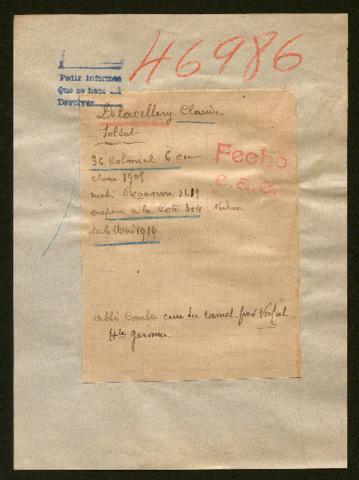 46986
Pedir informes
Que se hace
Devolver
Delacellery Claude
Soldat
36 Colonial 6 cie
classe 1905
mat. Roanne 1219
disparu a la Cote 304 Verdun
le 6 Mai 1916
Fecho
c.a.c.
abbé Combes par Verfeil
Hte garonne